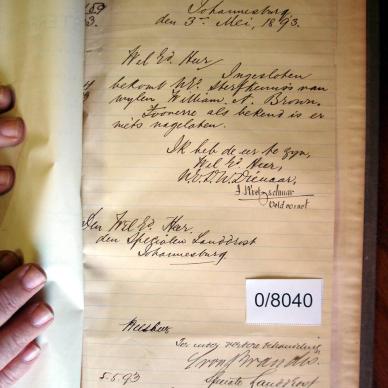 Johannesburg
den 3de Mei, 1893.
Wel Ed. Heer
Ingesloten
bekomt UEd. Sterfkennis van
wylen William A. Brown.
Zooverre als bekend is er
niets nagelaten.
Ik heb de eer te zyn,
Wel Ed. Heer,
U.Ed. D.W. Dienaar,
Veldcornet
Den Wel Ed. Heer.
den Specialen Landdrost
Johannesburg
0/8040
Weesheer
Ter uwer verdere behandeling
von Brandis
5.5.93
Speciale Landdrost